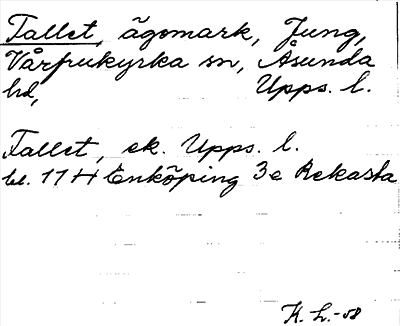 Tallet, ägomark, Ljung,
Vårfrukyrka sn, Åsunda
hd, Upps. l.
Tallet, ek. Upps. l.
bl. 17 H Enköping 3e Rekasta
K. L. -58